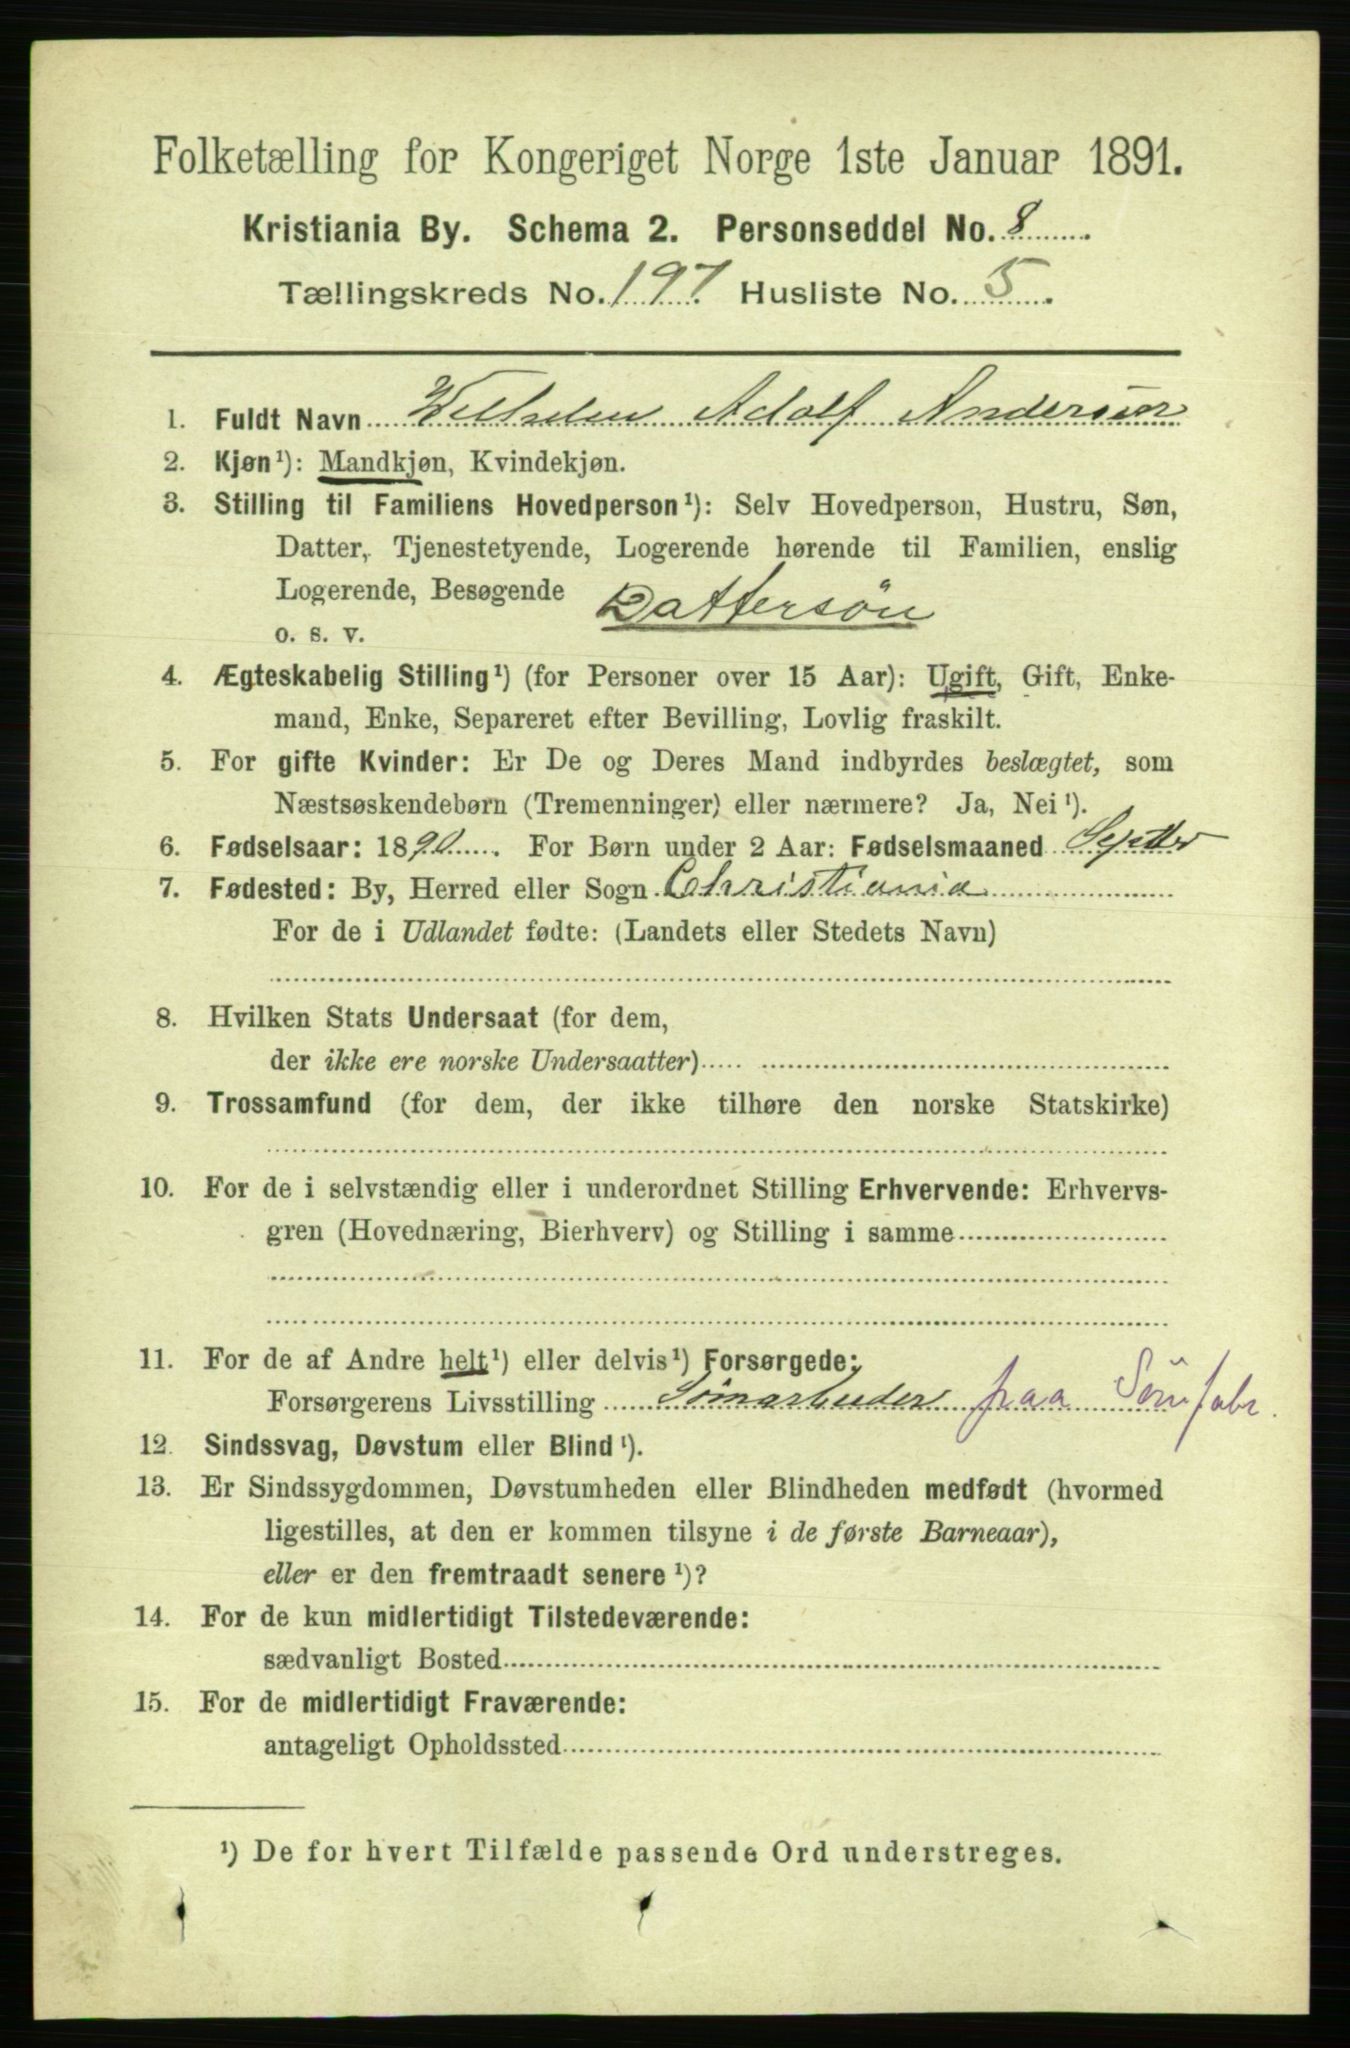 Folketælling for Kongeriget Norge 1ste Januar 1891.
Kristiania By. Schema 2. Personseddel No. 8
Tællingskreds No. 197. Husliste No. 5.
1. Fuldt Navn Wilhelm Adolf Andersen
2. Kjøn¹): Mandkjøn, Kvindekjøn.
3. Stilling til Familiens Hovedperson¹): Selv Hovedperson, Hustru, Søn,
Datter, Tjenestetyende, Logerende hørende til Familien, enslig
Logerende, Besøgende Dattersön
o. s. v.
4. Ægteskabelig Stilling¹) (for Personer over 15 Aar): Ugift, Gift, Enke-
mand, Enke, Separeret efter Bevilling, Lovlig fraskilt.
5. For gifte Kvinder: Er De og Deres Mand indbyrdes beslægtet, som
Næstsøskendebørn (Tremenninger) eller nærmere? Ja, Nei¹).
6. Fødselsaar: 1890. For Børn under 2 Aar: Fødselsmaaned Septbr
7. Fødested: By, Herred eller Sogn Christiania
For de i Udlandet fødte: (Landets eller Stedets Navn)
8. Hvilken Stats Undersaat (for dem,
der ikke ere norske Undersaatter)
9. Trossamfund (for dem, der ikke tilhøre den norske Statskirke)
10. For de i selvstændig eller i underordnet Stilling Erhvervende: Erhvervs-
gren (Hovednæring, Bierhverv) og Stilling i samme
11. For de af Andre helt¹) eller delvis¹) Forsørgede:
Forsørgerens Livsstilling Sømarbeider paa Sömfabr.
12. Sindssvag, Døvstum eller Blind¹).
13. Er Sindssygdommen, Døvstumheden eller Blindheden medfødt (hvormed
ligestilles, at den er kommen tilsyne i de første Barneaar),
eller er den fremtraadt senere¹)?
14. For de kun midlertidigt Tilstedeværende:
sædvanligt Bosted
15. For de midlertidigt Fraværende:
antageligt Opholdssted
¹) De for hvert Tilfælde passende Ord understreges.